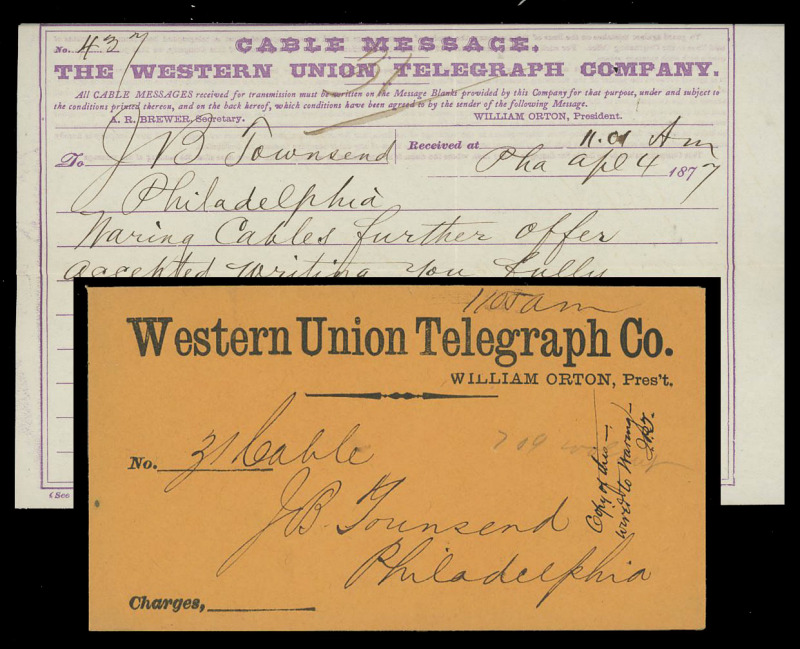 No. 437
CABLE MESSAGE.
31
THE WESTERN UNION TELEGRAPH COMPANY.
All CABLE MESSAGES received for transmission must be written on the Message Blanks provided by this Company for that purpose, under and subject to
the conditions printed thereon, and on the back hereof, which conditions have been agreed to by the sender of the following Message.
A. R. BREWER, Secretary. WILLIAM ORTON, President.
To J B Townsend
Received at 11.01 Am
Pha Apl 4 1877
Philadelphia
Waring Cables further offer
accepted writing you fully
(See
1105 am
Western Union Telegraph Co.
WILLIAM ORTON, Pres't.
No. 31 Cable
J.B. Townsend
Philadelphia
Charges,
Copy of this—
wired to Waring—